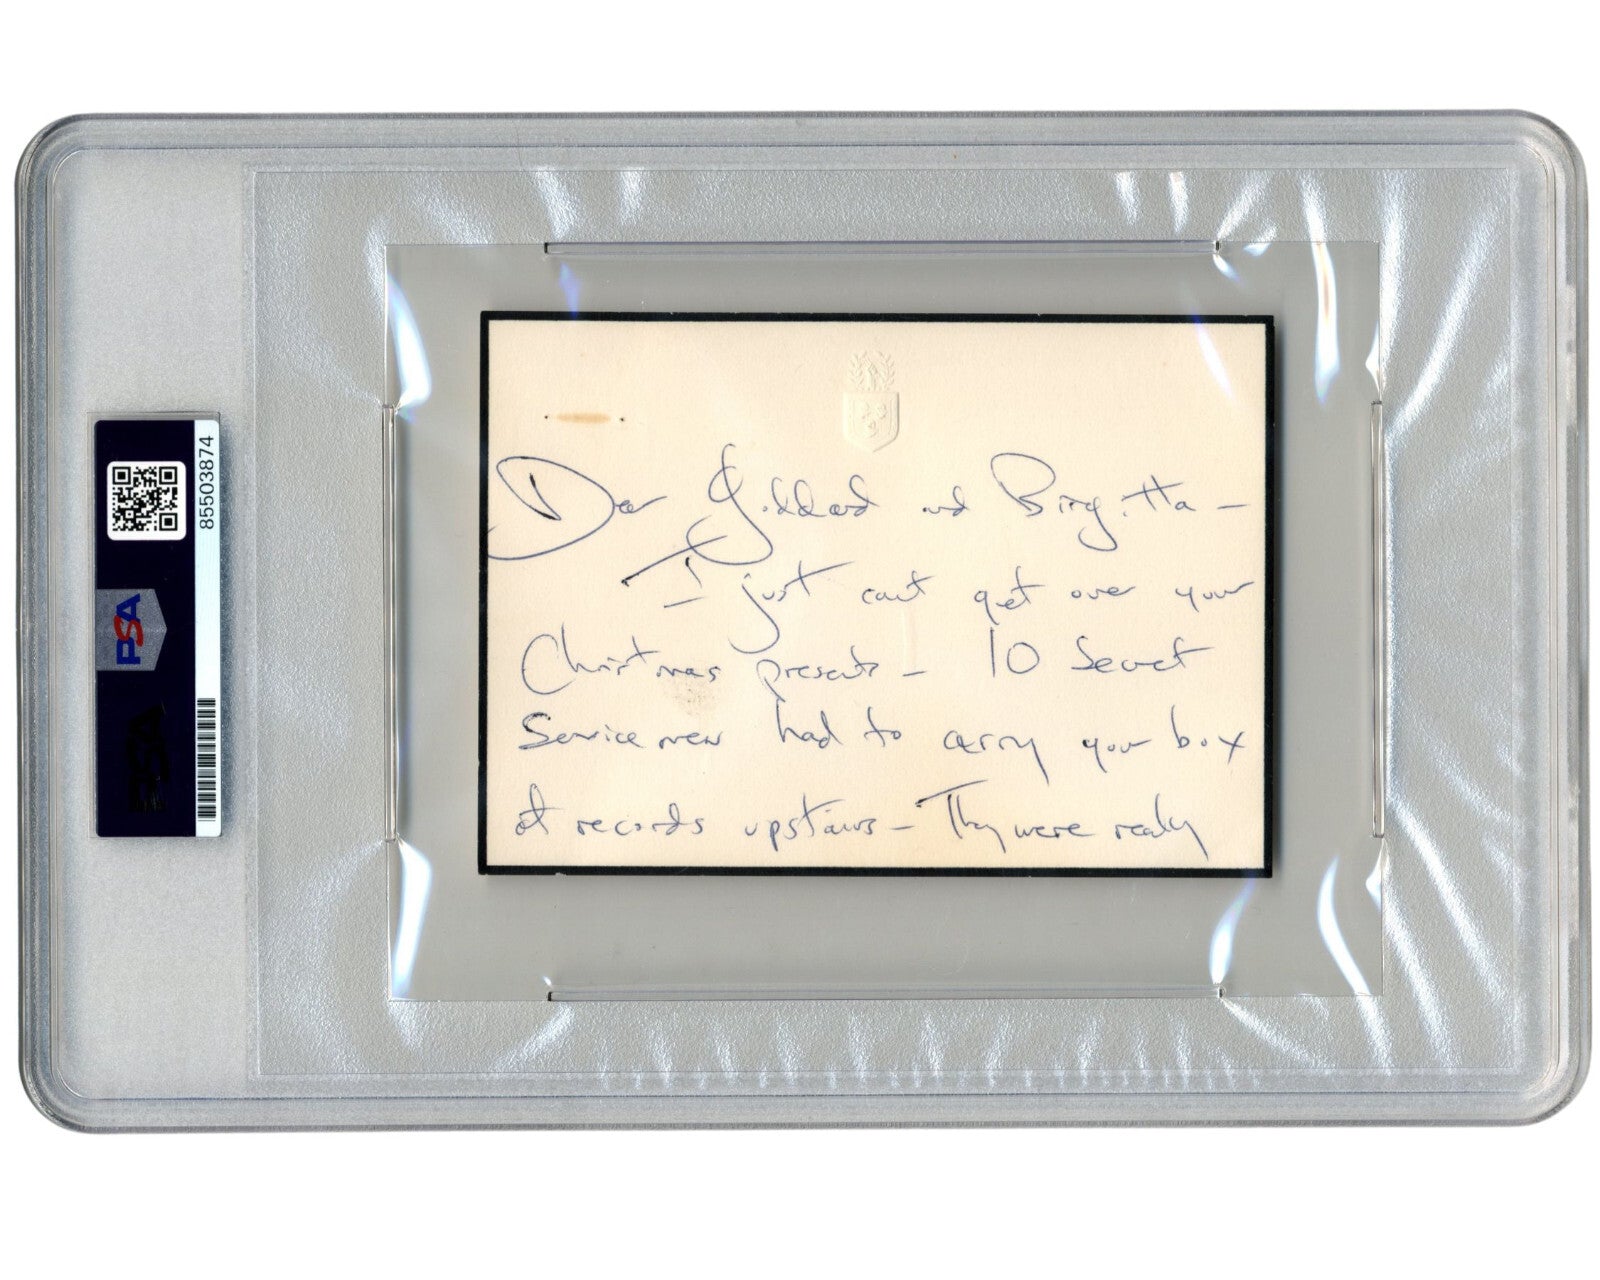 Dear Goddard and Birgitta –
I just can't get over your
Christmas presents – 10 Secret
Service men had to carry your box
of records upstairs – They were really
85503874
PSA
PSA